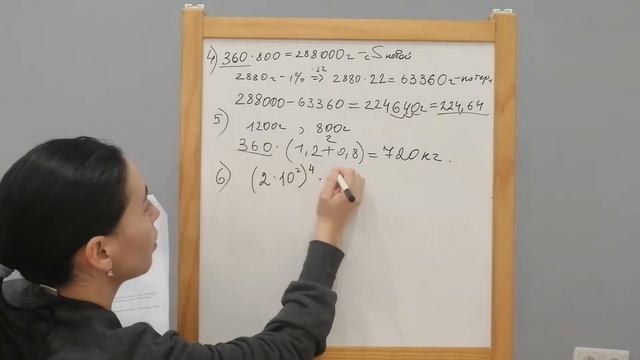 4) 360·800 = 288000г - с S новой
2880г - 1% ⇒ ·22 2880·22 = 63360г - потер
288000 - 63360 = 224640г = 224,64
5) 1200г , 800г
2
360·(1,2+0,8) = 720кг.
6) (2·10²)⁴ ·